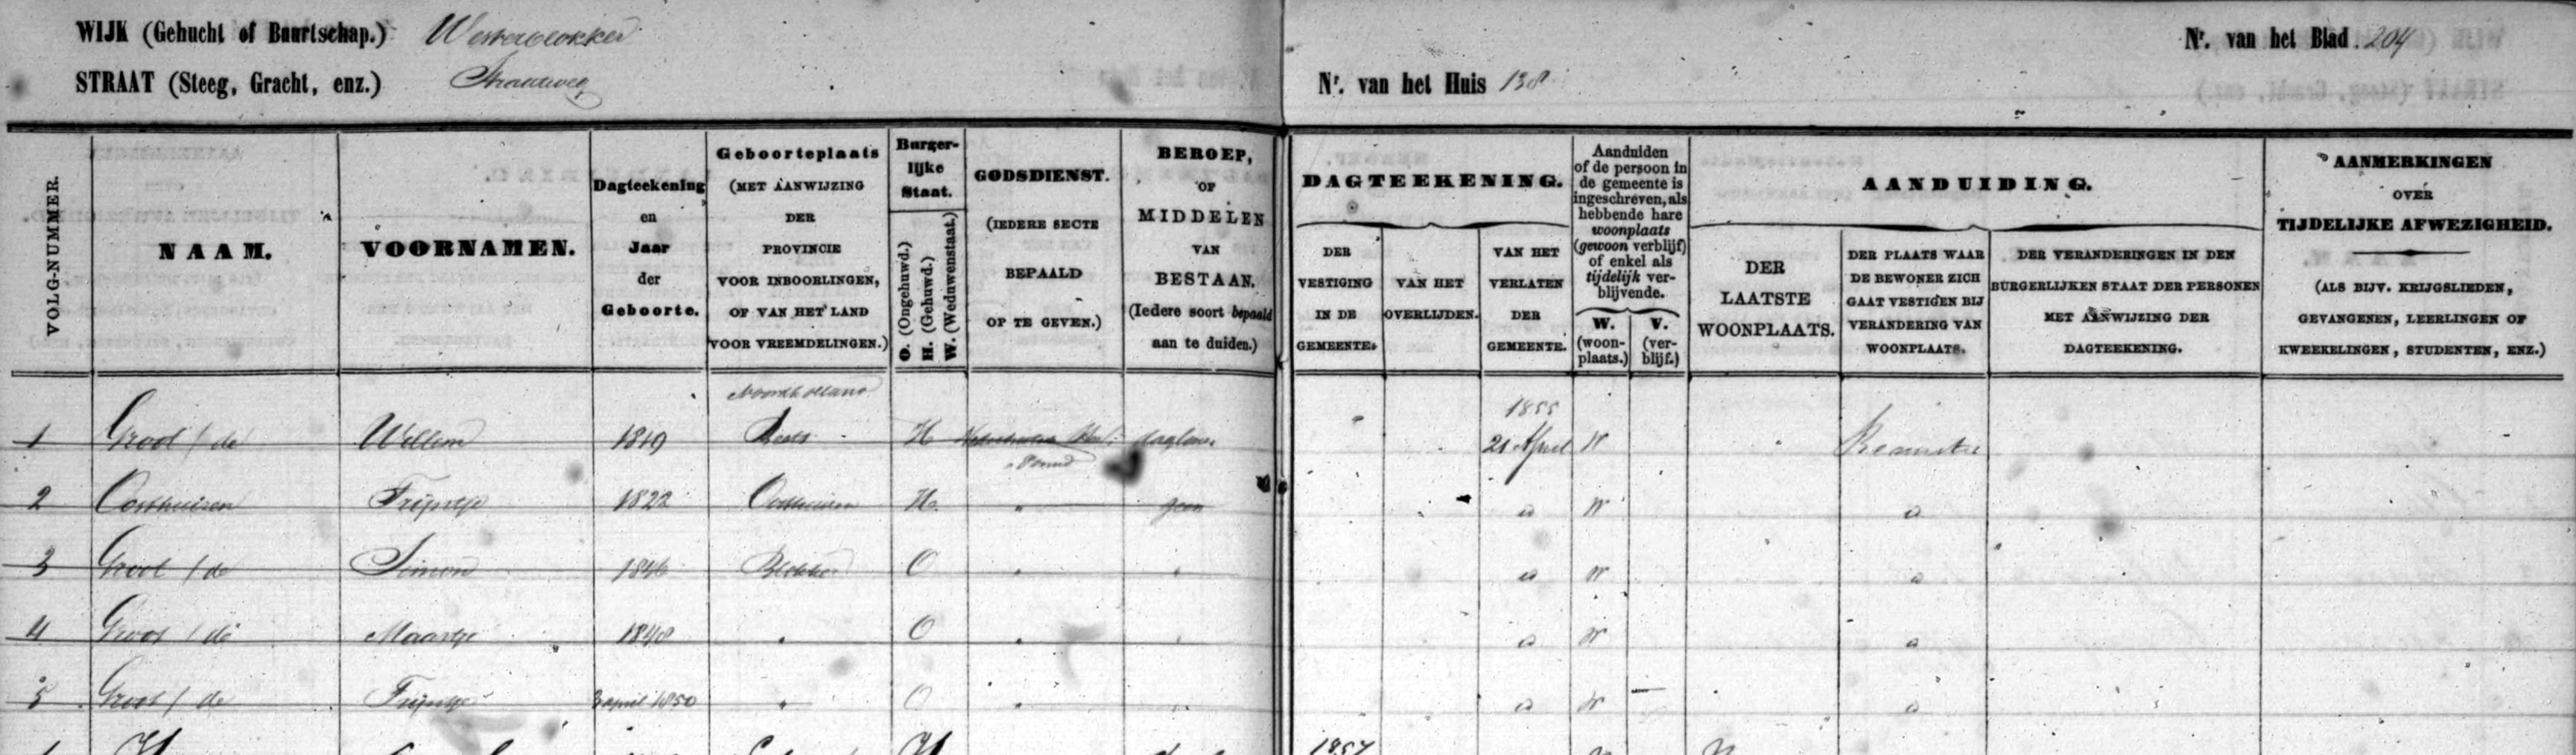 WIJK (Gehucht of Buurtschap.) Westerblokker
STRAAT (Steeg, Gracht, enz.) Straatweg
Nr. van het Huis 138
Nr. van het Blad. 204
VOLG-NUMMER.
NAAM.
VOORNAMEN.
Dagteekening
en
Jaar
der
Geboorte.
Geboorteplaats
(MET AANWIJZING
DER
PROVINCIE
VOOR INBOORLINGEN,
OF VAN HET LAND
VOOR VREEMDELINGEN.)
Burger-
lijke
Staat.
O. (Ongehuwd.)
H. (Gehuwd.)
W. (Weduwenstaat.)
GODSDIENST.
(IEDERE SECTE
BEPAALD
OP TE GEVEN.)
BEROEP,
OF
MIDDELEN
VAN
BESTAAN.
(Iedere soort bepaald
aan te duiden.)
DAGTEEKENING.
DER
VESTIGING
IN DE
GEMEENTE.
VAN HET
OVERLIJDEN.
VAN HET
VERLATEN
DER
GEMEENTE.
Aanduiden
of de persoon in
de gemeente is
ingeschreven, als
hebbende hare
woonplaats
(gewoon verblijf)
of enkel als
tijdelijk ver-
blijvende.
W.
(woon-
plaats.)
V.
(ver-
blijf.)
AANDUIDING.
DER
LAATSTE
WOONPLAATS.
DER PLAATS WAAR
DE BEWONER ZICH
GAAT VESTIGEN BIJ
VERANDERING VAN
WOONPLAATS.
DER VERANDERINGEN IN DEN
BURGERLIJKEN STAAT DER PERSONEN
MET AANWIJZING DER
DAGTEEKENING.
AANMERKINGEN
OVER
TIJDELIJKE AFWEZIGHEID.
(ALS BIJV. KRIJGSLIEDEN,
GEVANGENEN, LEERLINGEN OF
KWEEKELINGEN, STUDENTEN, ENZ.)
Noordholland
1855
1 Groot / de Willem 1819 Beets H daglooner 21 April W Beemster
2 Oosthuizen Trijntje 1822 Oosthuizen H. " geen a W a
3 Groot / de Simon 1846 Blokker O " " a W a
4 Groot / de Maartje 1848 " O " " a W a
5 Groot / de Trijntje 3 april 1850 " O " " a W a
1857